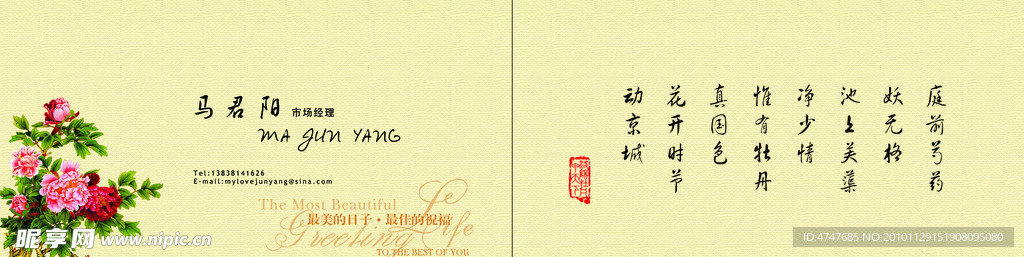 马君阳 市场经理
MA JUN YANG
Tel:13838141626
E-mail:mylovejunyang@sina.com
The Most Beautiful
最美的日子·最佳的祝福
Greeting Life
TO THE BEST OF YOU
昵享网 www.nipic.cn
庭前芍药
妖无格
池上美蕖
净少情
惟有牡丹
真国色
花开时节
动京城
ID:4747685 NO:20101129151908095080